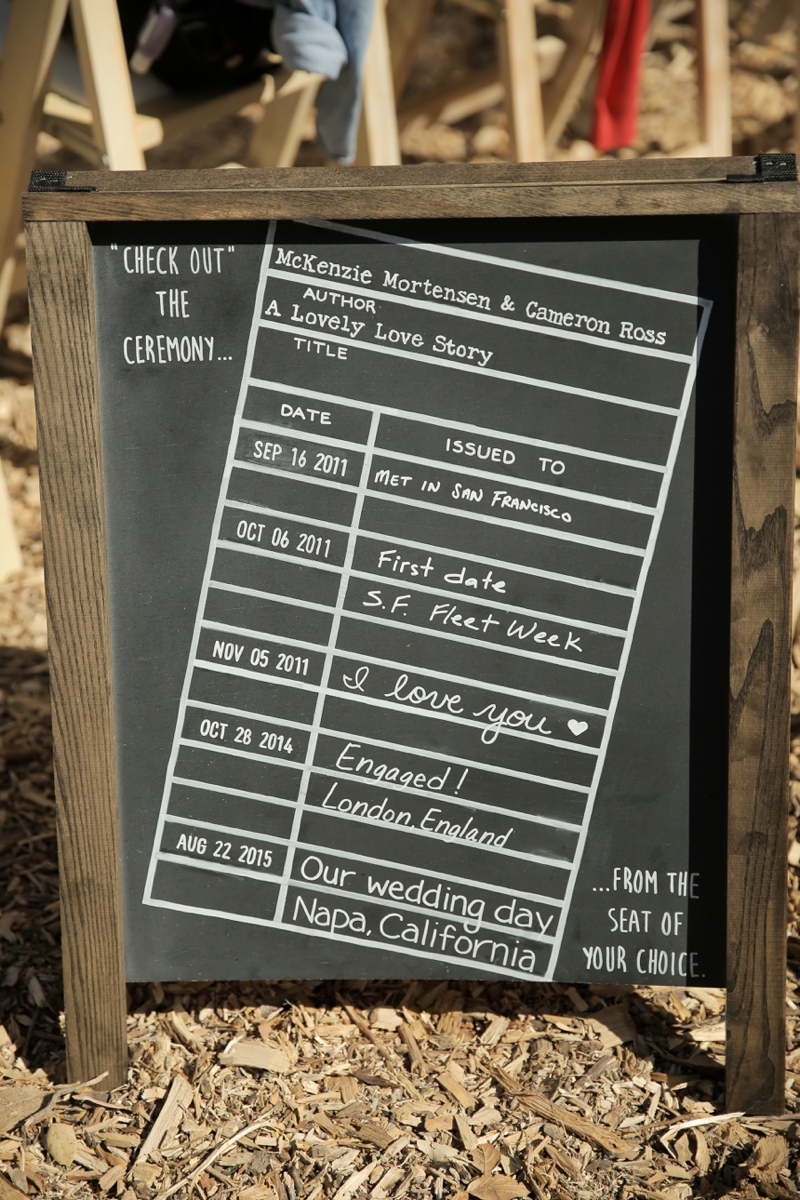 "CHECK OUT"
THE
CEREMONY...
McKenzie Mortensen & Cameron Ross
AUTHOR
A Lovely Love Story
TITLE
DATE
ISSUED TO
SEP 16 2011
MET IN SAN FRANCISCO
OCT 06 2011
First date
S.F. Fleet Week
NOV 05 2011
I love you ♥
OCT 28 2014
Engaged!
London, England
AUG 22 2015
Our wedding day
Napa, California
...FROM THE
SEAT OF
YOUR CHOICE.